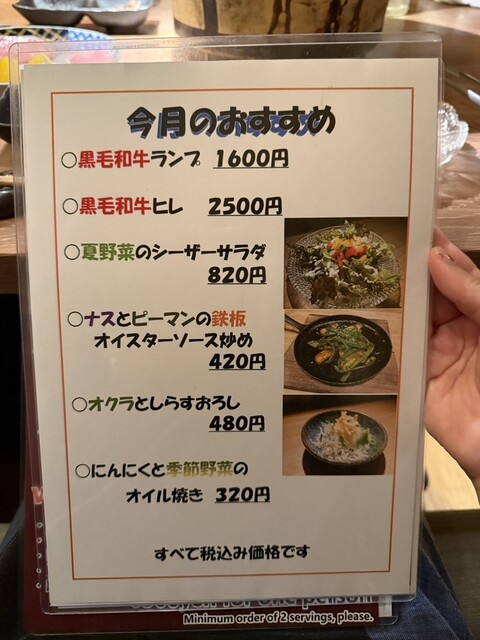 今月のおすすめ
○黒毛和牛ランプ 1600円
○黒毛和牛ヒレ 2500円
○夏野菜のシーザーサラダ
820円
○ナスとピーマンの鉄板
オイスターソース炒め
420円
○オクラとしらすおろし
480円
○にんにくと季節野菜の
オイル焼き 320円
すべて税込み価格です
for one person
Minimum order of 2 servings, please.